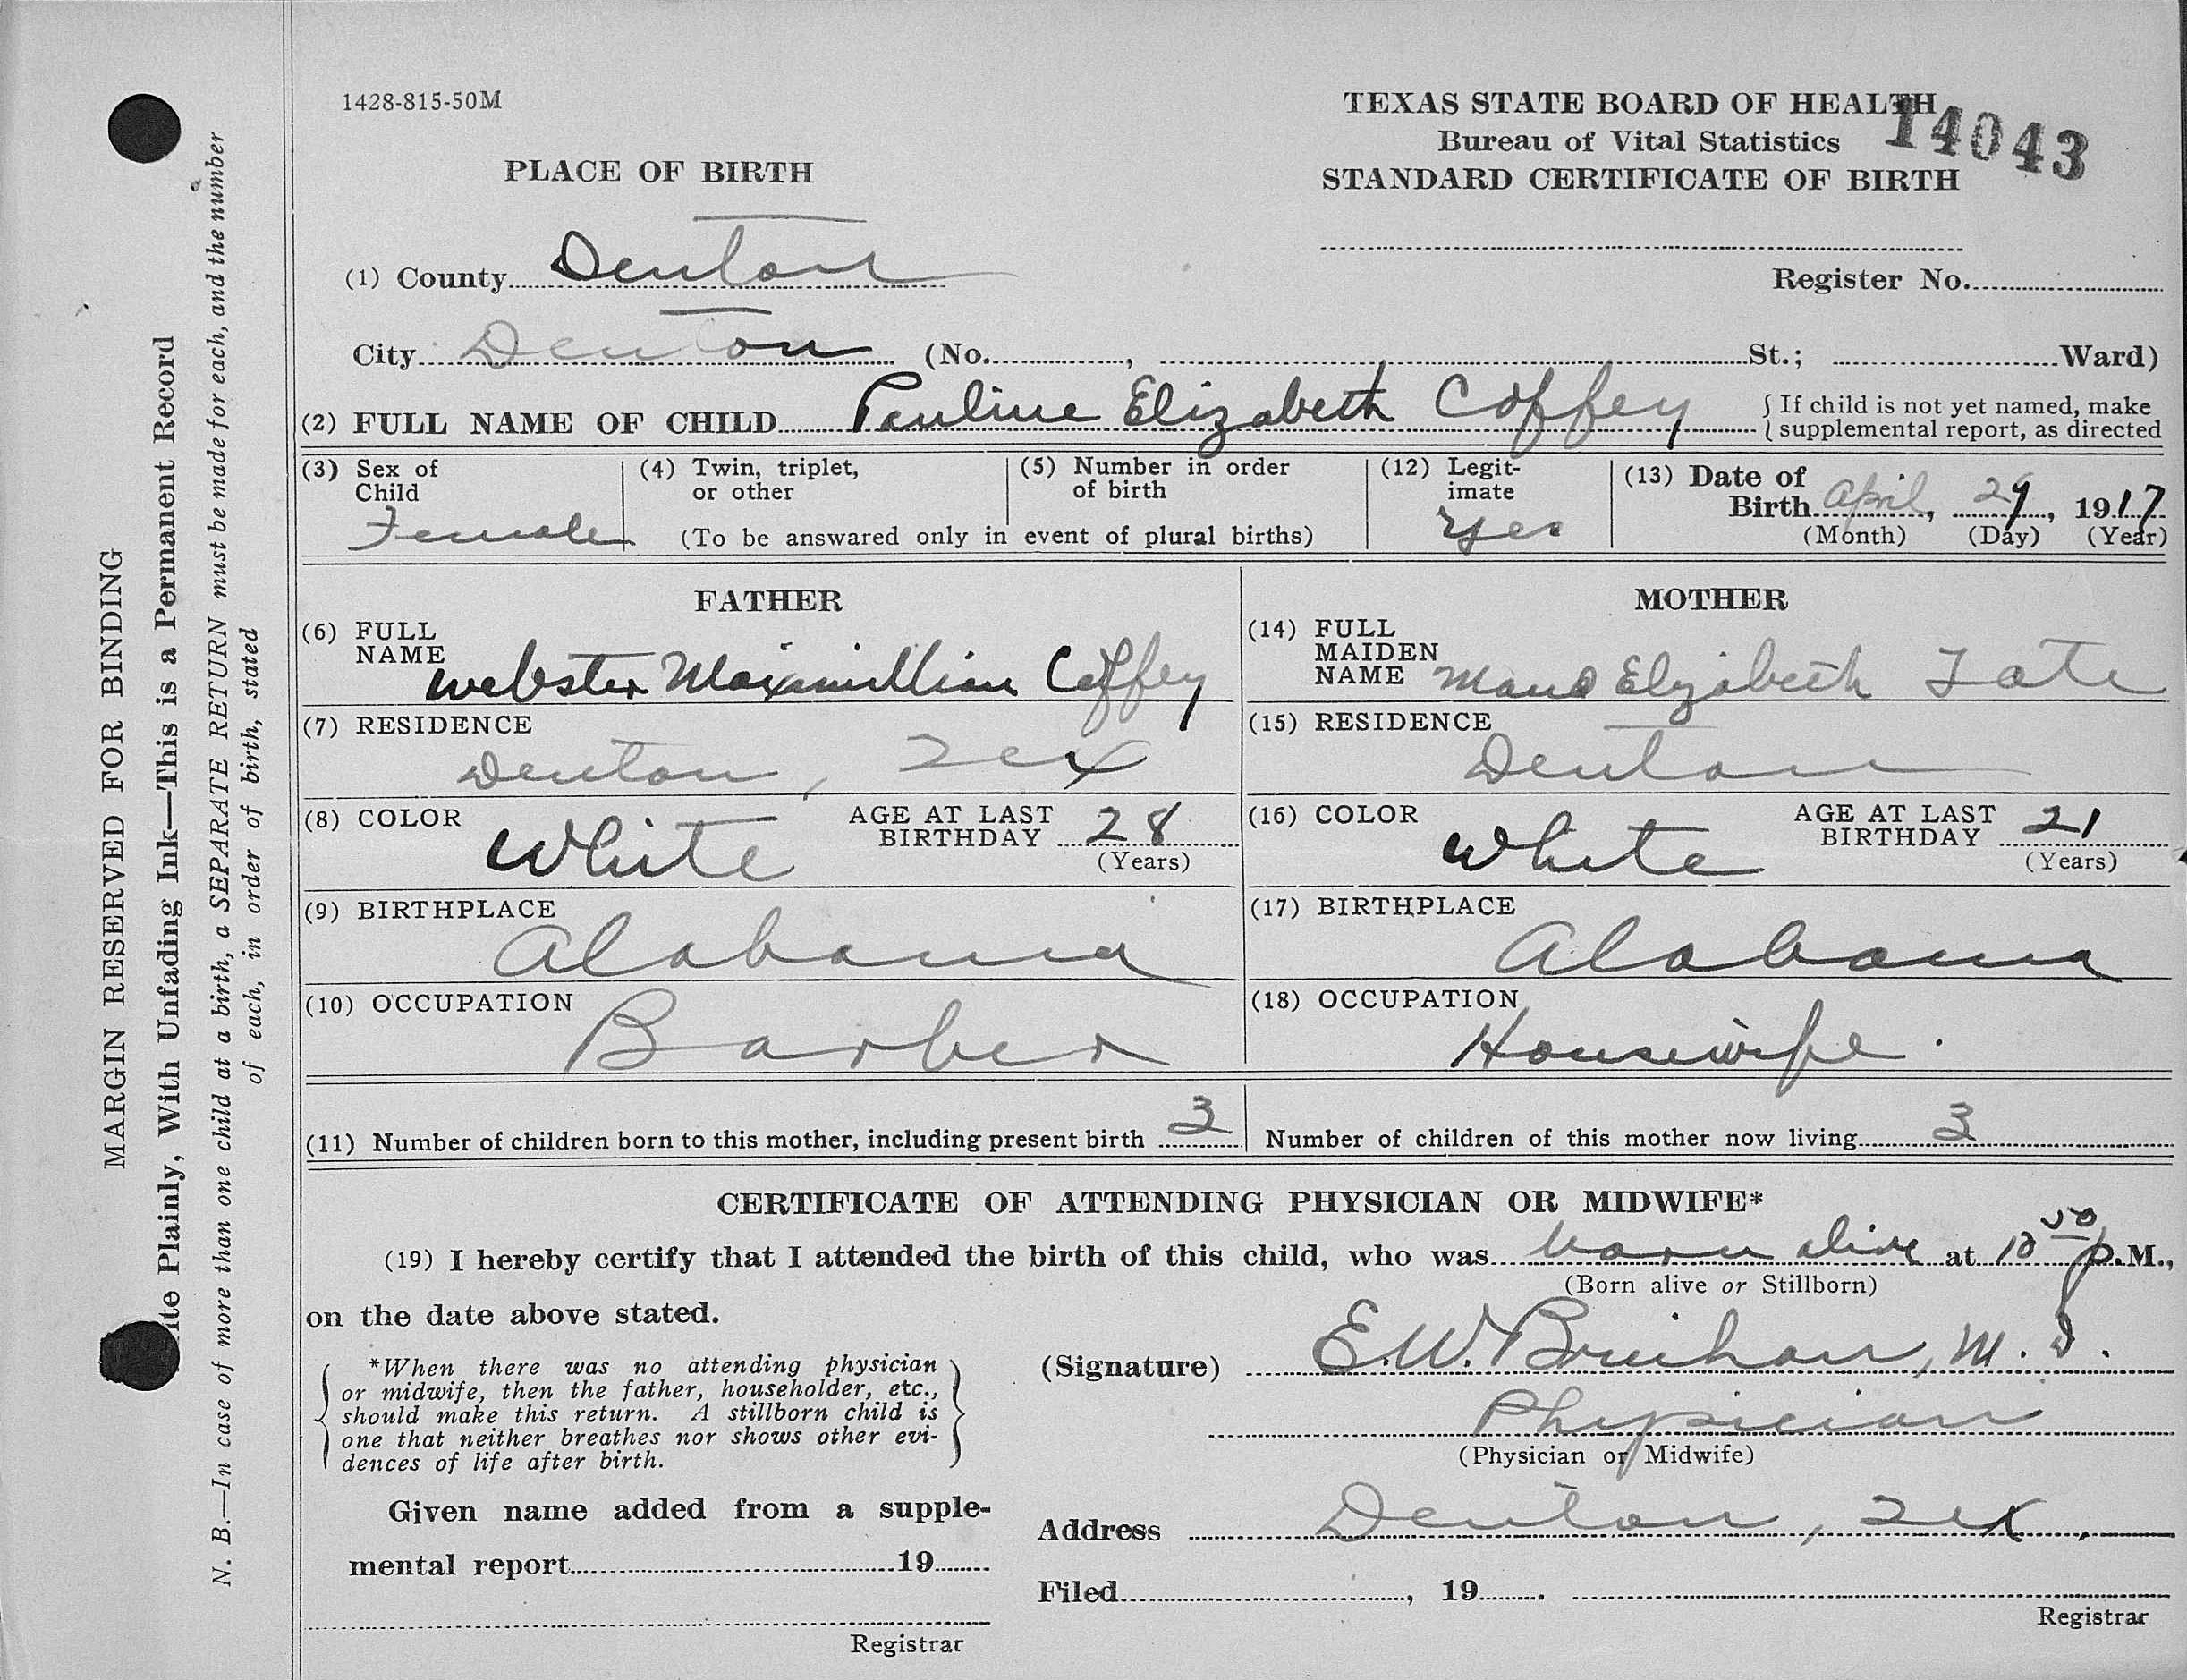 1428-815-50M
TEXAS STATE BOARD OF HEALTH
Bureau of Vital Statistics
14043
STANDARD CERTIFICATE OF BIRTH
PLACE OF BIRTH
(1) County Denton
Register No.
City Denton (No. , St.; Ward)
(2) FULL NAME OF CHILD Pauline Elizabeth Coffey
{ If child is not yet named, make
supplemental report, as directed
(3) Sex of Child Female
(4) Twin, triplet, or other
(5) Number in order of birth
(To be answared only in event of plural births)
(12) Legit-imate Yes
(13) Date of Birth April, 29, 1917
(Month) (Day) (Year)
FATHER
(6) FULL NAME Webster Maximillian Coffey
(7) RESIDENCE Denton, Tex
(8) COLOR White AGE AT LAST BIRTHDAY 28 (Years)
(9) BIRTHPLACE Alabama
(10) OCCUPATION Barber
MOTHER
(14) FULL MAIDEN NAME Maud Elizabeth Tate
(15) RESIDENCE Denton
(16) COLOR White AGE AT LAST BIRTHDAY 21 (Years)
(17) BIRTHPLACE Alabama
(18) OCCUPATION Housewife.
(11) Number of children born to this mother, including present birth 3
Number of children of this mother now living 3
CERTIFICATE OF ATTENDING PHYSICIAN OR MIDWIFE*
(19) I hereby certify that I attended the birth of this child, who was born alive at 10 50 p.M.,
(Born alive or Stillborn)
on the date above stated.
*When there was no attending physician
or midwife, then the father, householder, etc.,
should make this return. A stillborn child is
one that neither breathes nor shows other evi-
dences of life after birth.
(Signature) E.W. M.D.
Physician
(Physician or Midwife)
Given name added from a supple-
mental report 19
Registrar
Address Denton, Tex.
Filed , 19
Registrar
MARGIN RESERVED FOR BINDING
Plainly, With Unfading Ink—This is a Permanent Record
N. B.—In case of more than one child at a birth, a SEPARATE RETURN must be made for each, and the number
of each, in order of birth, stated